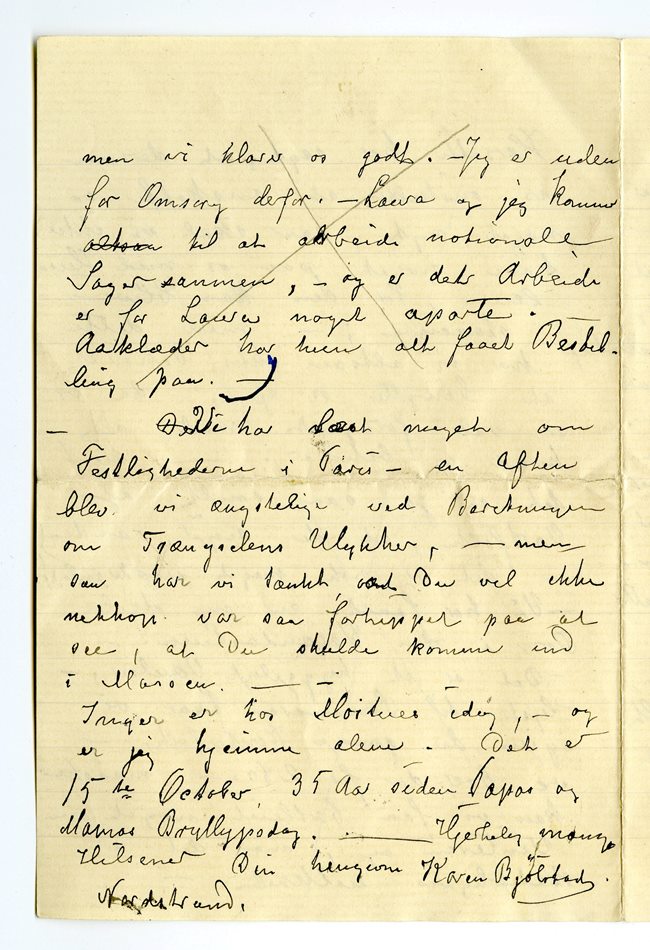 men vi klarer os godt. – Jeg er uden
for Omsorg derfor. – Laura og jeg komme
altsaa til at arbeide nationale
Sager sammen, – og er dette Arbeide
er for Laura noget aparte.
Aaklæder har hun alt faaet Bestil-
ling paa. —
– Vi har læst meget om
Festlighederne i Paris – en Aften
blev vi ængstelige ved Beretningen
om Trængselens Ulykker, – men
saa har vi tænkt, at Du vel ikke
netop var saa forhippet paa at
see, at Du skulde komme ind
i Massen. — –
Inger er hos idag, – og
er jeg hjemme alene. Det er
15te October, 35 Aar siden Papas og
Mamas Bryllypsdag. — Hjertelig mange
Hilsener Din hengivne Karen Bjølstad.
Nordstrand.